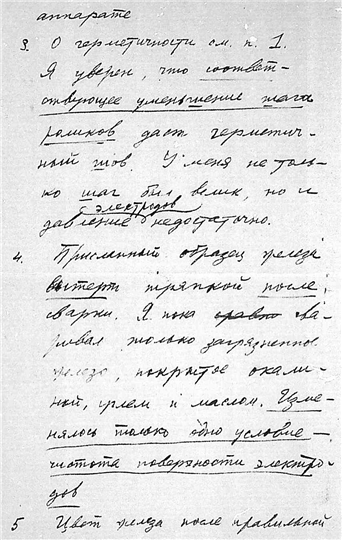 аппарате
3. О герметичности см. п. 1.
Я уверен, что соответ-
ствующее уменьшение шага
роликов даст герметич-
ный шов. У меня не толь-
ко шаг был велик, но и
электродов
давление недостаточно.
4. Присланный образец железа
вытерт тряпкой после
сварки. Я пока сва-
ривал только загрязненное
железо, покрытое окали-
ной, углем и маслом. Изме-
нялось только одно условие –
чистота поверхности электро-
дов
5 Цвет железа после правильной